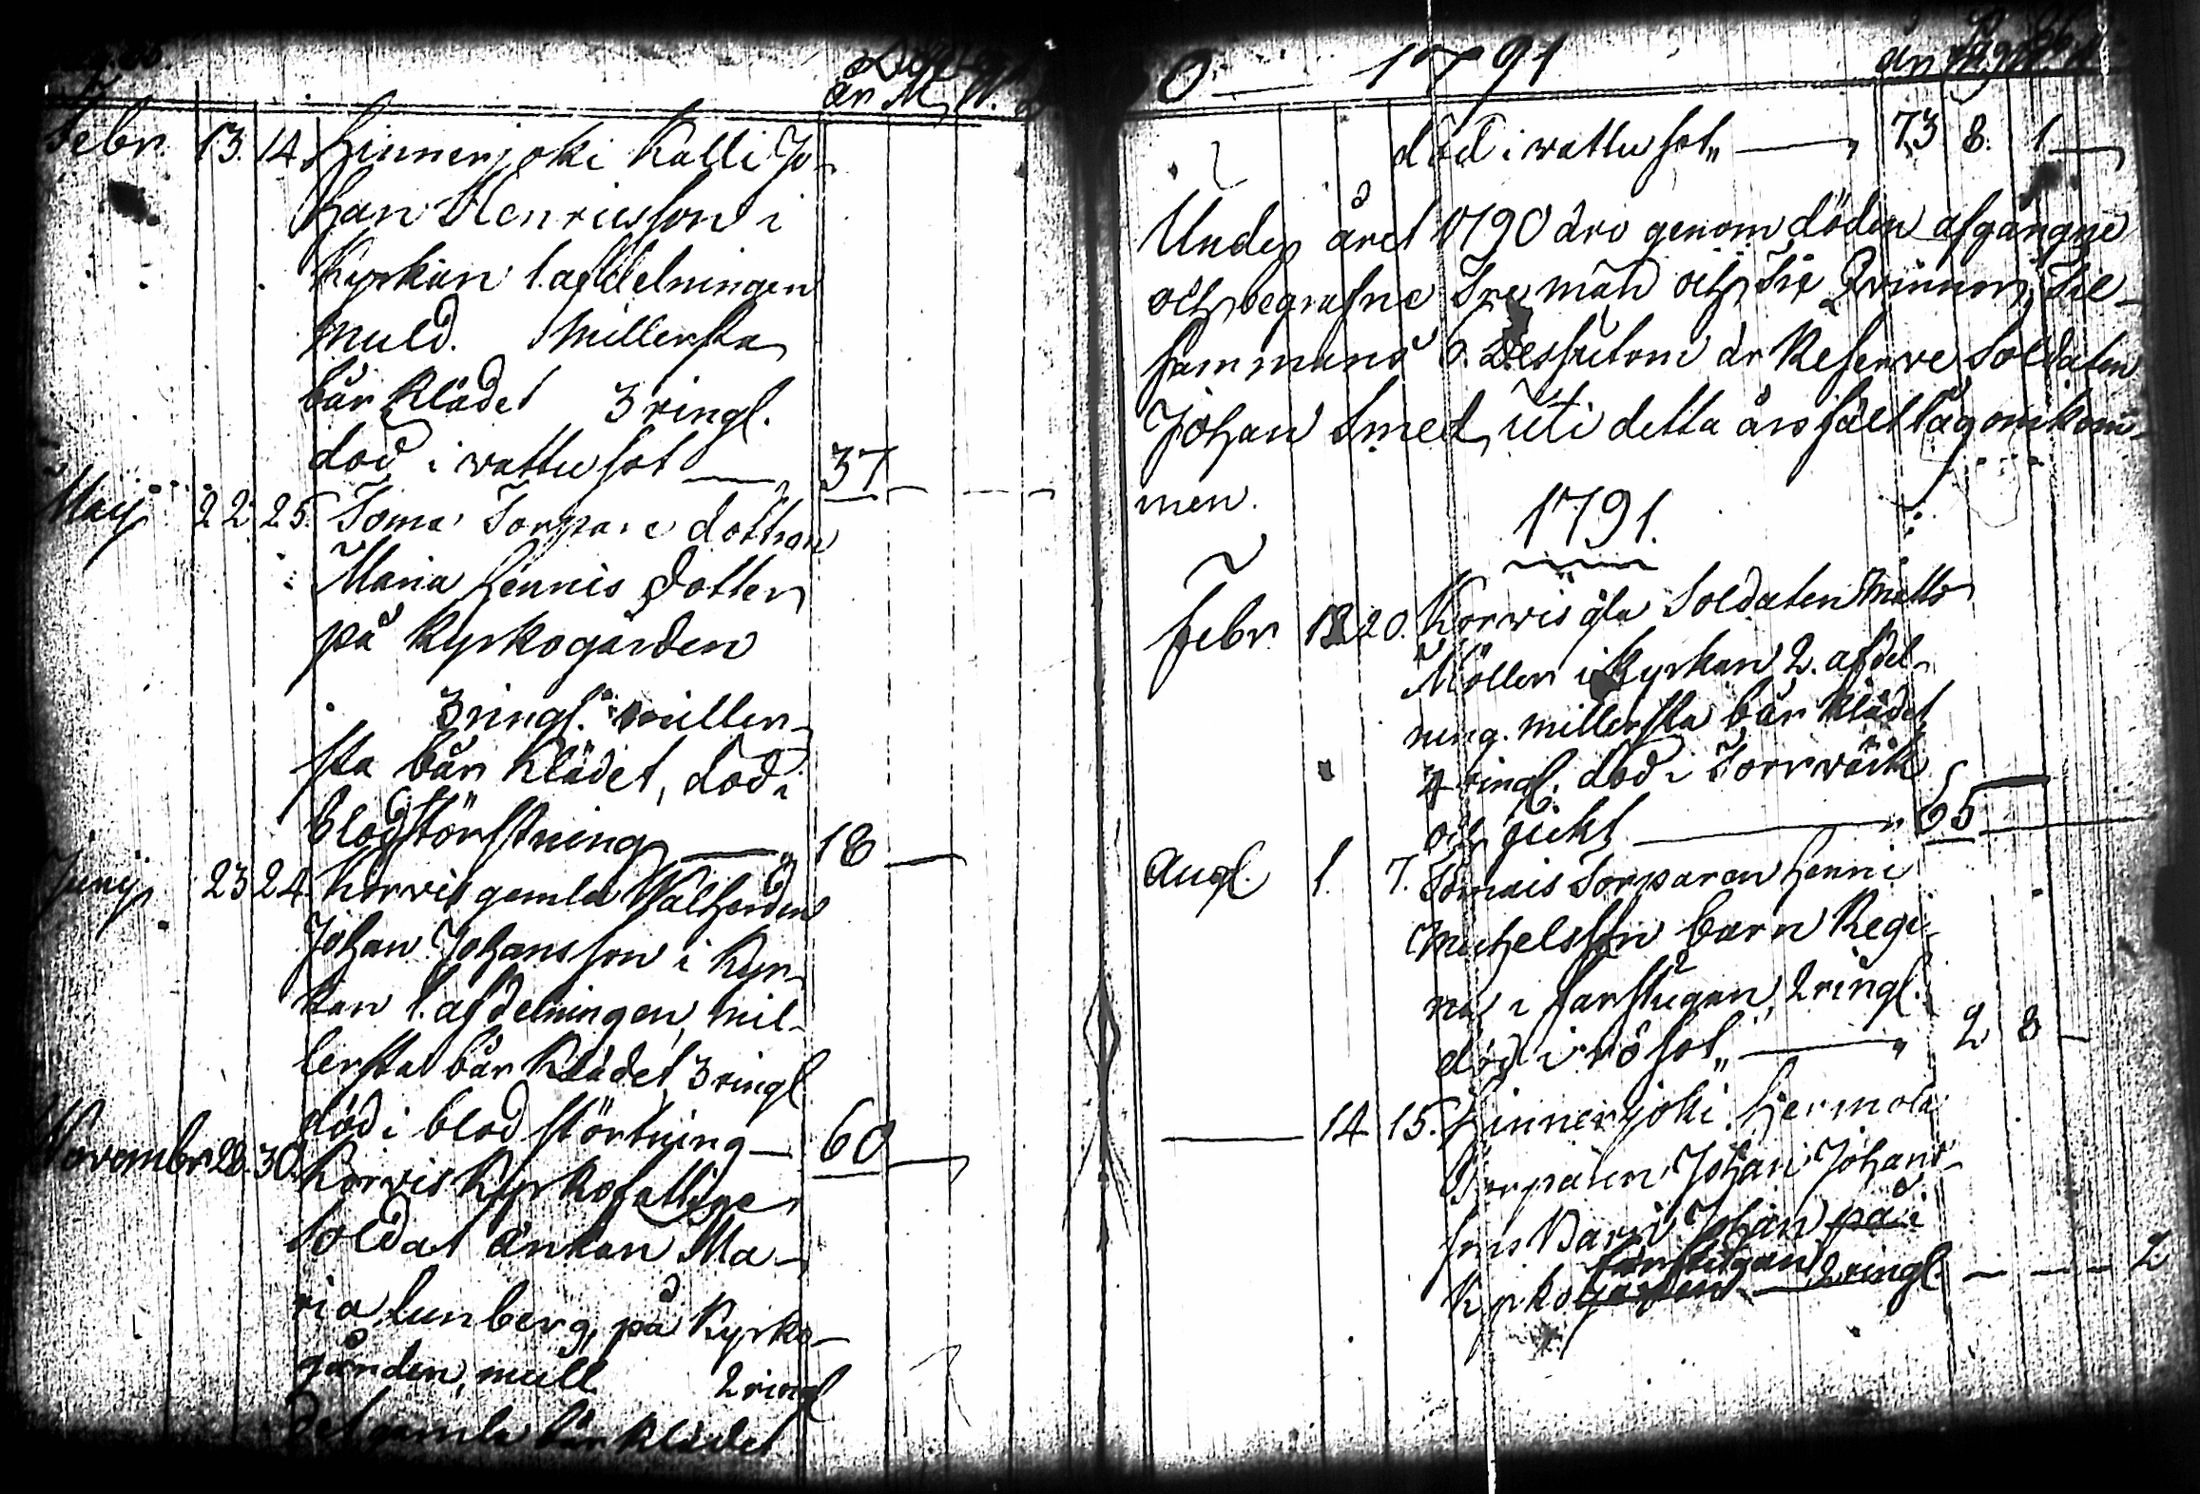 år M
Febr 13. 14 Hinnerjoki Kalli Jo-
han Henricsson i
Kyrkan 1. afdelningen
muld. Millersta
bår klädet 3 ringl.
död i wattusot 37
Maij 22 25. Torpare dottren
Maria Hennis dotter
på Kyrkogården
3 ringl. miller-
sta bår klädet, död i
blodstörstning 18
Junij 23 24. Korvis gamla
Johan Johansson i Kyr-
kan 1. afdelningen, mil-
lersta bår klädet, 3 ringl
död i blodstörtning 60
November 28. 30. Korvis Kyrkofattige
soldat änkan Ma-
ria Lunberg, på Kyrko-
gården, mull 2 ringl
Det gamla bår klädet
0 1791
död i wattusot 73 8. 1
Under året 1790 äro genom döden afgångne
och begrafne Tre män och Tre Qvinnor, Til-
sammans 6. Dessutom är Reserve Soldaten
Johan Smed, uti detta års fälttåg omkom-
men.
1791.
Febr. 13 20. Korvis Soldaten Matts
Möller i Kyrkan 2. afdel-
ning. millersta bår klädet
4 ringl. död i Torrwärk
och gickt 65
Aug. 1. 7. Torparen Henni
Michelsson barn Regi-
na i farstugan, 2 ringl.
död i rösot 2 8
14 15. Hinnerjoki Hermola
Torparen Johan Johans-
sons Barn Johan på i
farstugan
Kyrkogården 2 ringl. 2